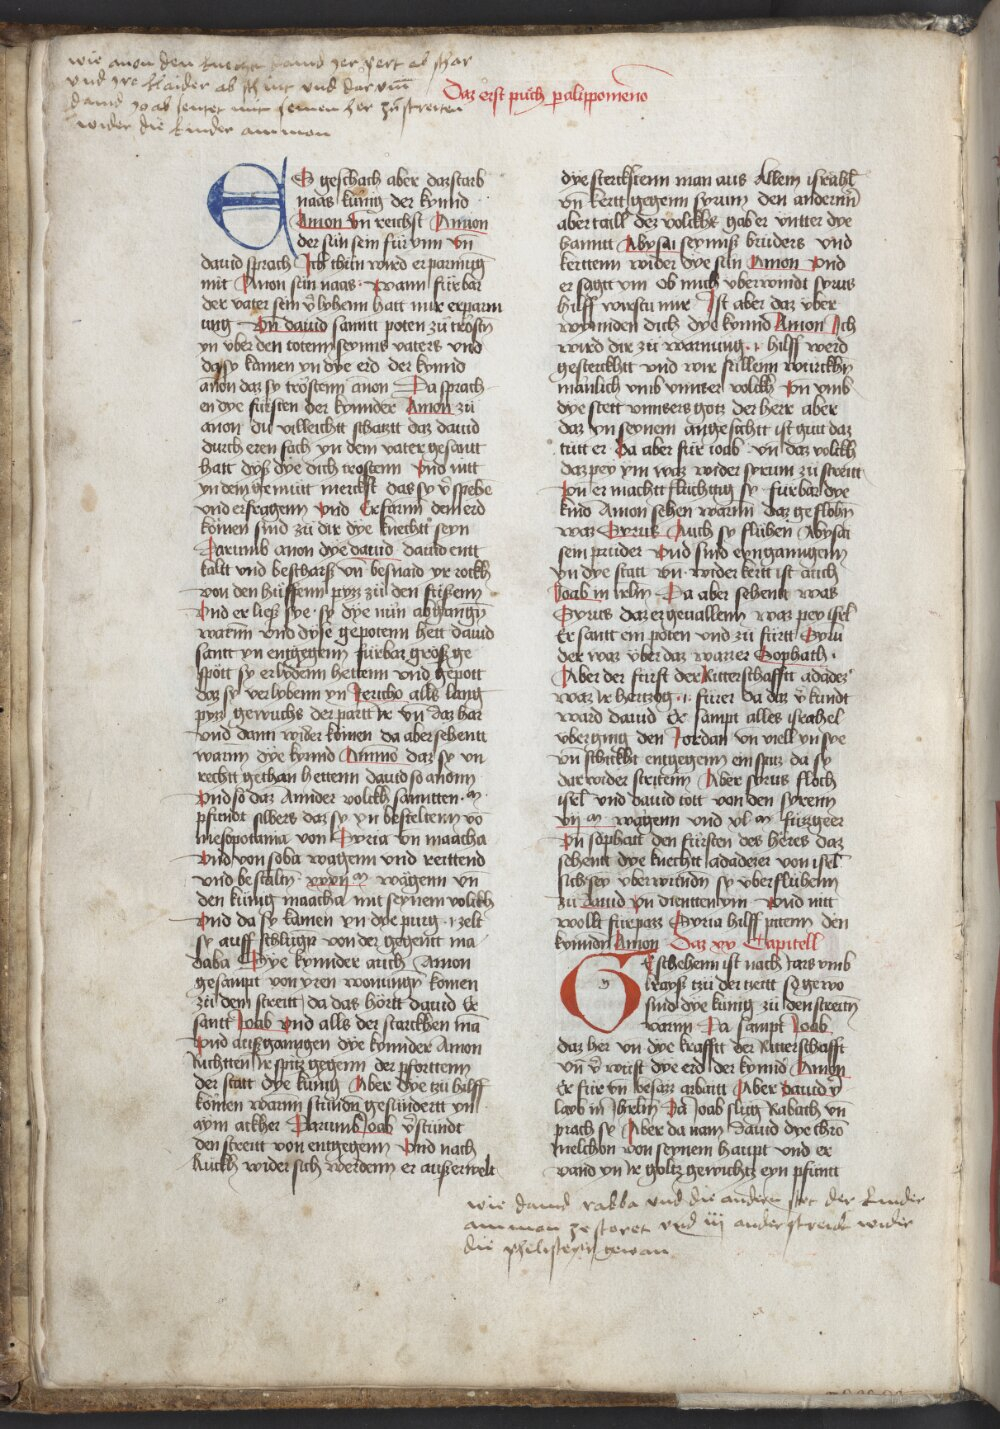 wie anon den knechten dauid jer pert ab schar
und jre klaider ab schnit und darumb
dauid joab sentet mit seinem her zu streiten
wider die kinder ammon
Daz erst puch paralippomeno
ES geschach aber daz starb
naas kunig der kynnd
Amon Vn reichst Amon
der sun sein fur ynn vn
dauid sprach Ich thun wird erparmug
mit Anon sun naas Wann furbar
der vater sein v̉lyhenn hatt mir erparm
ung Vn dauid sanntt poten zu trostn
yn vber den totenn seynns vaters vnd
da sy kamen yn dye erd der kynnd
amon daz sy trostenn anon Da sprach
en dye fursten der kynnder Amon zu
anon du villeichtt schatztt daz dauid
durch eren sach yn dem vater gesantt
hatt dyß dye dich trostenn Vnd nitt
yn dem gemutt merckst das sy v̉spehe
vnd erfragenn Vnd Erfarnn dem erd
komen sind zu dir dye knechtt seyn
Darumb anon dye dauid dauid entt
kaltt vnd bescharß vn besnaid yr rockh
von den huffenn pyz zu den fußenn
Vnd er ließ sye sy dye nun abgangn
warnn vnd dyse gepotenn hett dauid
santt yn entgegenn furbar groß ge
spott sy erlydenn hettenn vnd gepott
daz sy verlybenn yn Jericho alls lang
pyz gewuchs der partt Ir vn daz har
vnd dann wider komen da aber sehentt
warnn dye kynnd Ammo daz sy vn
rechtt gethan hettenn dauid so anonn
Vnd so daz Annder volckh sanntten m
pfundt silbers daz sy yn bestelten vo
mesopotania von Syria vn maacha
Vnd von soba wagenn vnd reittend
vnd bestaltn xxxij m wagenn vn
den kunig maacha mit seynem volckh
Vnd da sy kamen yn dye purg zelt
sy auff schlugn von der gegentt ma
daba Dye kynnder auch Amon
gesampt von yren wonungn komen
zu dem streitt da das hortt dauid Er
santt Joab Vnd alls der starckhen ma
Vnd außganngen dye kynnder Amon
Richtten Ir spitz gegenn der pfortten
der statt dye kunig Aber dye tzu hilff
komen warnn stundn gesundertt yn
aym ackher Darumb Joab v̉stundt
den streitt von entgegenn Vnd nach
Ruckh wider sich werdenn er außerwelt
dye sterckstenn man aus Allem israhl
vn kertt gegenn syrum den anderinn
aber taill dez volckhs gab er vntter dye
hanntt Abysai seynnß bruders vnd
kerttenn wider dye sun Amon Vnd
er sagtt ym ob mich vberwindt syrus
hilff wirstu mir Ist aber daz vber
wynnden dich dye kynnd Amon Ich
wird dir zu warnung hilff werd
gesterckhtt vnd wir sullenn wurckhn
mänlich vmb vnnser volckh Vn vmb
dye stett vnnsers gotz der herr aber
daz yn seynem angesichtt ist gutt daz
tutt er Da aber fur ioab vn daz volckh
daz pey ym waz wider syrum zu streitt
Vn er machtt fluchtig sy furbar dye
kind Amon sehen warnn daz geflohn
war Syrus Auch sy fluhen Abysai
sein pruder Vnd sind eynganngenn
yn dye statt Vn wider kertt ist auch
Joab in irlm Da aber sehentt was
Syrus daz er geuallenn waz pey isrl
Er santt ein poten vnd zu furtt Syru
der waz vber daz wazzer Sophath
Aber der furst der Ritterschafftt adadez
waz Ir hertzog furer da daz v̉kundt
ward dauid Er sampt alles israhel
vberging den Jordan vn viell yn sye
vn schickht entgegenn ein spitz da sy
dar wider streitenn Aber syrus floch
isrl vnd dauid tott von den syrenn
vij m wagenn vnd xl m fuzgeer
Vn sophatt den fursten des heres daz
sehentt dye knechtt adadezer von isrl
sich sey vberwundn sy vberfluhenn
zu dauid Vn dienttenn ym Vnd nitt
wollt furpazz Syria hilff pittenn den
kynndn Amon Daz xx Capitell
Geschehenn ist nach Jars vmb
krayß tzu der tzeitt so gewo
sind dye kunig zu den streitn
warnn Da sampt Joab
daz her vn dye krafftt der Ritterschafft
vn v̉wust dye erd der kynnd Amon
Er fur vn besazz arbaitt Aber dauid v̉
layb in Jhrlm Da Joab slug Rabach vn
prach sy Aber da nam Dauid dye chro
melchon von seynem haupt vnd er
vand yn Ir goltz gewichtz eyn pfuntt
wie dauid rabba vnd die anderen stet der kinder
ammon zestoret vnd iij ander streidt wider
die philisteyn gewan